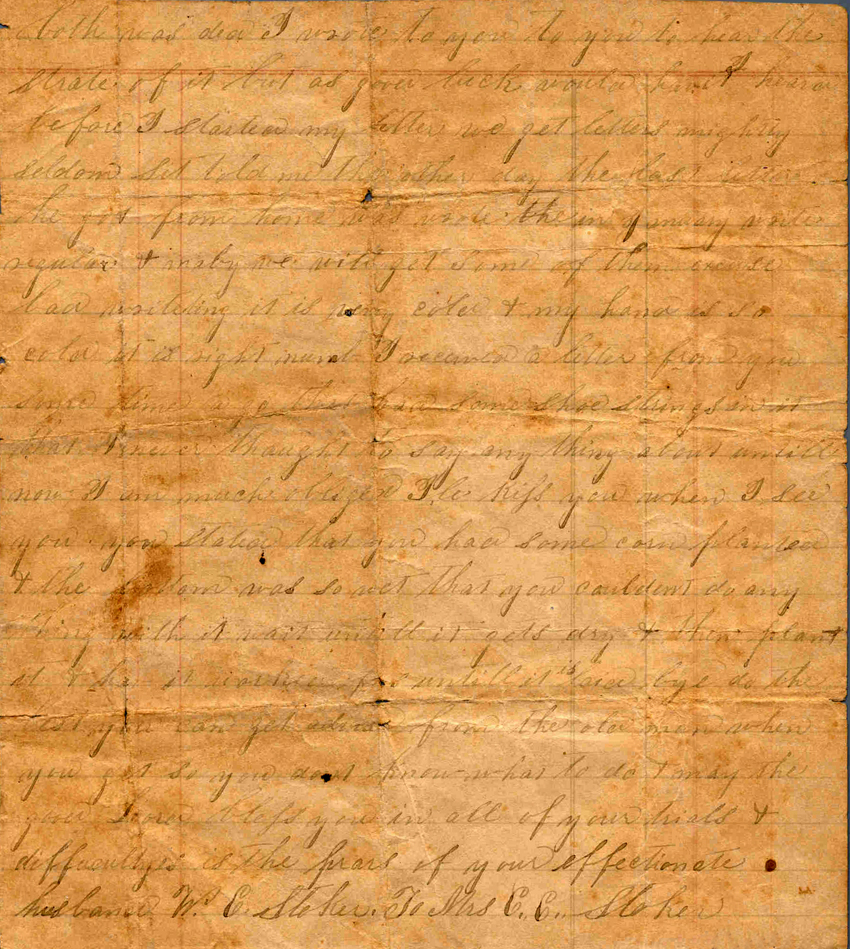 both was dead I wrote to you to you to hear the
strate of it but as good luck would have it I heard
before I started my letter we get letters mighty
seldom Set told me the other day the last letter
she got from home was wrote the
regular & maby we will get some of them excuse
bad writeing it is very cold & my hand is so
cold it is right numb I received a letter from you
some time ago that had some shoe strings in it
that I never thought to say any thing about untill
now I am much obliged I le kiss you when I see
you you stated that you had some corn planted
& the bottom was so wet that you couldent do any
thing with it wait untill it gets dry & then plant
it & it worked untill it is laid bye do the
best you can get advice from the old man when
you get so you dont know what to do & may the
good Lord bless you in all of your trials &
diffacultyes is the prars of your effectionate
husband W. E. Stoker. To Mrs E. E. Stoker